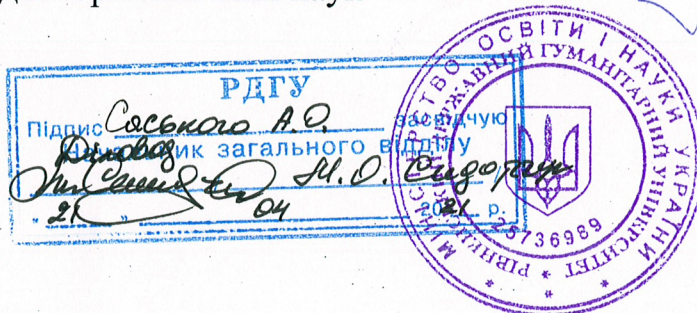 РДГУ
Підпис Сяського А.О. засвідчую
Начальник загального відділу
М.О. Сидорчук
„ 21 " 04 2021 р.
МІНІСТЕРСТВО ОСВІТИ І НАУКИ УКРАЇНИ
РІВНЕНСЬКИЙ ДЕРЖАВНИЙ ГУМАНІТАРНИЙ УНІВЕРСИТЕТ
25736989